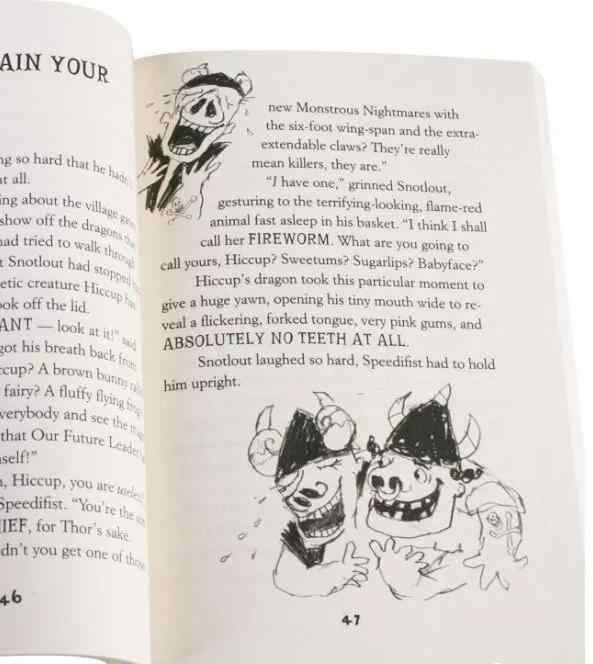 AIN YOUR
ng so hard that he hadn't
at all.
ing about the village
show off the dragons
had tried to walk through
t Snotlout had stopped
etic creature Hiccup
ook off the lid.
ANT — look at it!" said
got his breath back from
ccup? A brown bunny
fairy? A fluffy flying
verybody and see the
that Our Future Leader
nself!"
Hiccup, you are useless
Speedifist. "You're the
HIEF, for Thor's sake.
dn't you get one of those
46
new Monstrous Nightmares with
the six-foot wing-span and the extra-
extendable claws? They're really
mean killers, they are."
"I have one," grinned Snotlout,
gesturing to the terrifying-looking, flame-red
animal fast asleep in his basket. "I think I shall
call her FIREWORM. What are you going to
call yours, Hiccup? Sweetums? Sugarlips? Babyface?"
Hiccup's dragon took this particular moment to
give a huge yawn, opening his tiny mouth wide to re-
veal a flickering, forked tongue, very pink gums, and
ABSOLUTELY NO TEETH AT ALL.
Snotlout laughed so hard, Speedifist had to hold
him upright.
47